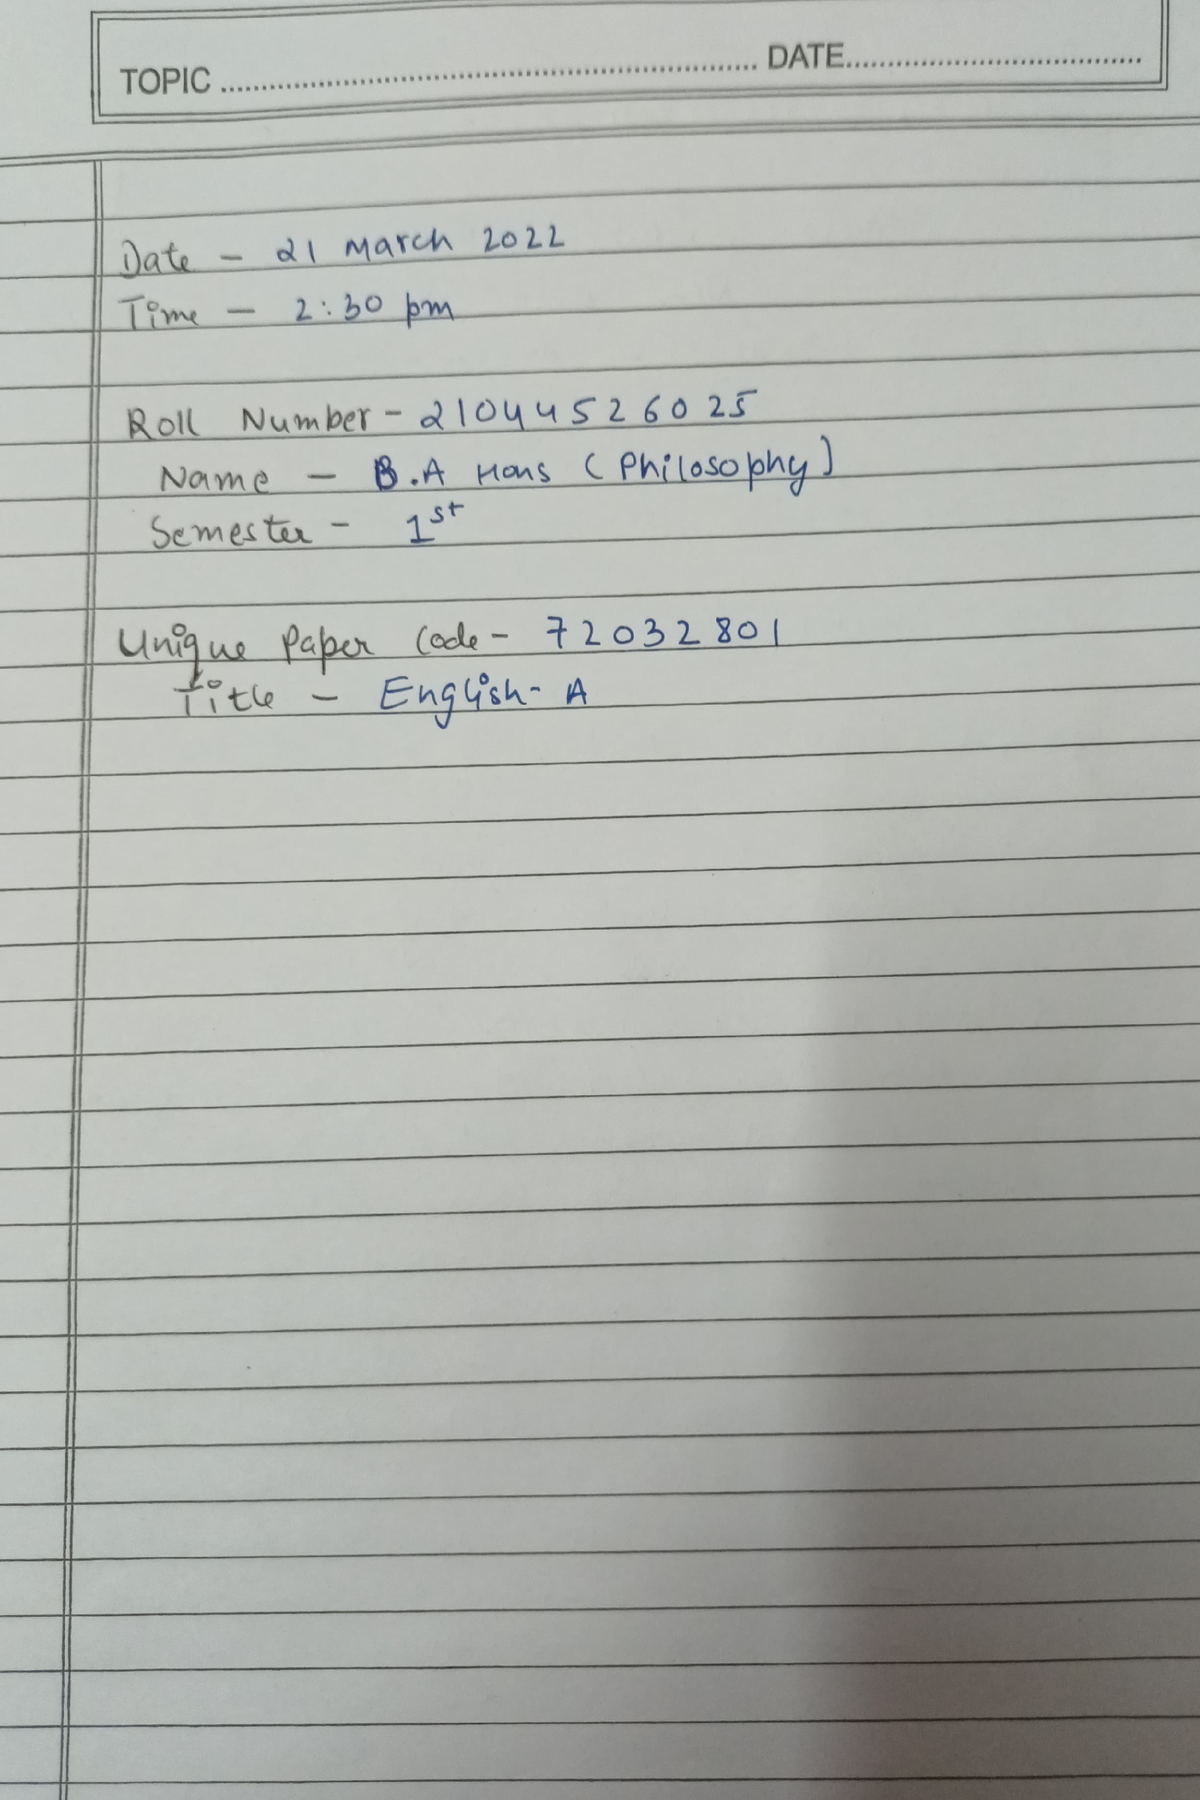 TOPIC ........................................................................ DATE....................................
Date - 21 March 2022
Time - 2:30 pm
Roll Number - 210445526025
Name - B.A Hons (Philosophy)
Semester - 1st
Unique Paper Code - 72032801
Title - English-A